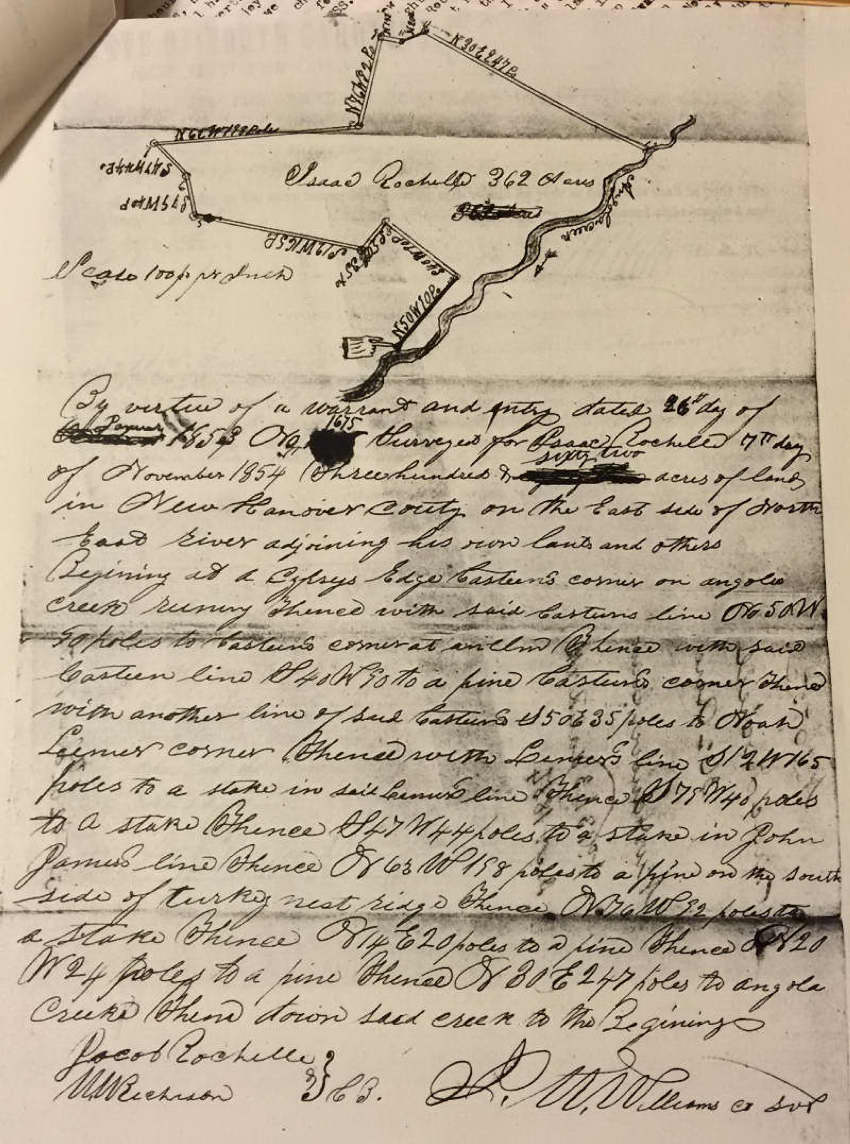 N20W24
N30E247P
N76W92P
N63W198 Poles
S47W44P.
S75W40P
Isaac Rochelle 362 Acres
Angola creek
S12W165P
S50E35P
S40W70P
N50W70P.
Scale 100p pr Inch
By virtue of a warrant and entry dated 26th day of
1853 No 1675 Surveyed for Isaac Rochelle 7th day
of November 1854 Three hundred & sixty two acres of land
in New Hanover Couty on the East side of North
East River adjoining his own land and others
Begining at a Cyprys Edge Casteens corner on angola
creek runing Thence with said Casteens line N50W
poles to Casteens corner at an Elm Thence with said
Casteen line S40W to a pine Casteens corner Thence
with another line of said Casteens S50E35 poles to Noah
corner Thence with line S12W165
poles to a stake in said line Thence S75W40 poles
to a stake Thence S47W44 poles to a stake in John
James line Thence N63W198 poles to a pine on the south
side of turkey nest ridge Thence N76W92 poles to
a stake Thence N14E20 poles to a pine Thence N20
W24 poles to a pine Thence N30E247 poles to angola
Creek Thence down said creek to the Begining
Jacob Rochelle
Richison } C B.
Williams Co Sur